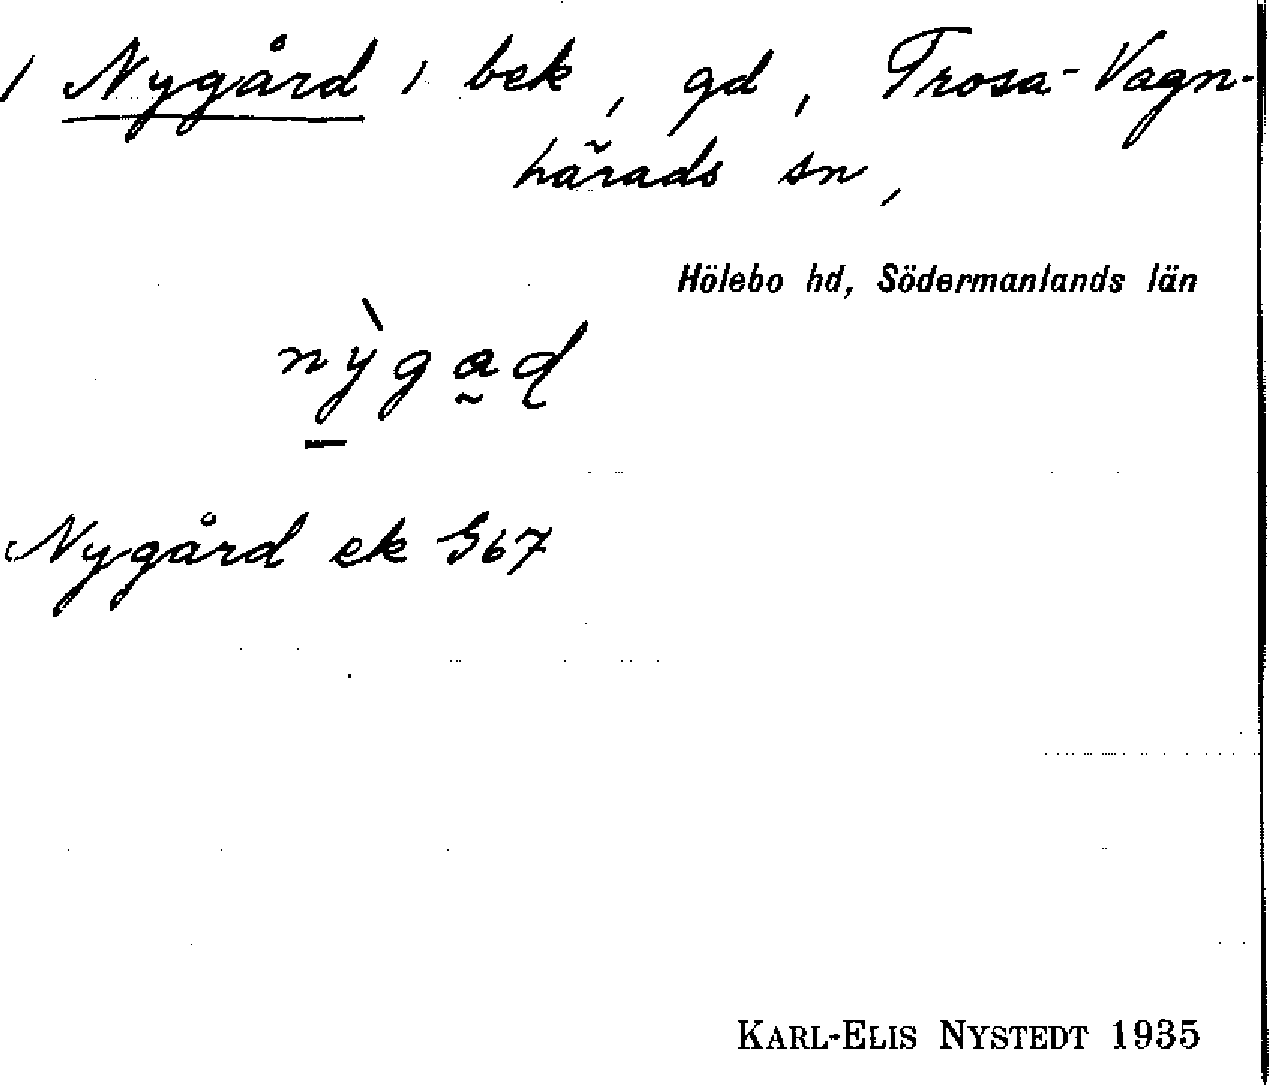 / Nygård / bek, gd, Trosa-Vagn-
härads sn,
Hölebo hd, Södermanlands län
nỳga̰ɖ
Nygård ek G67
KARL-ELIS NYSTEDT 1935